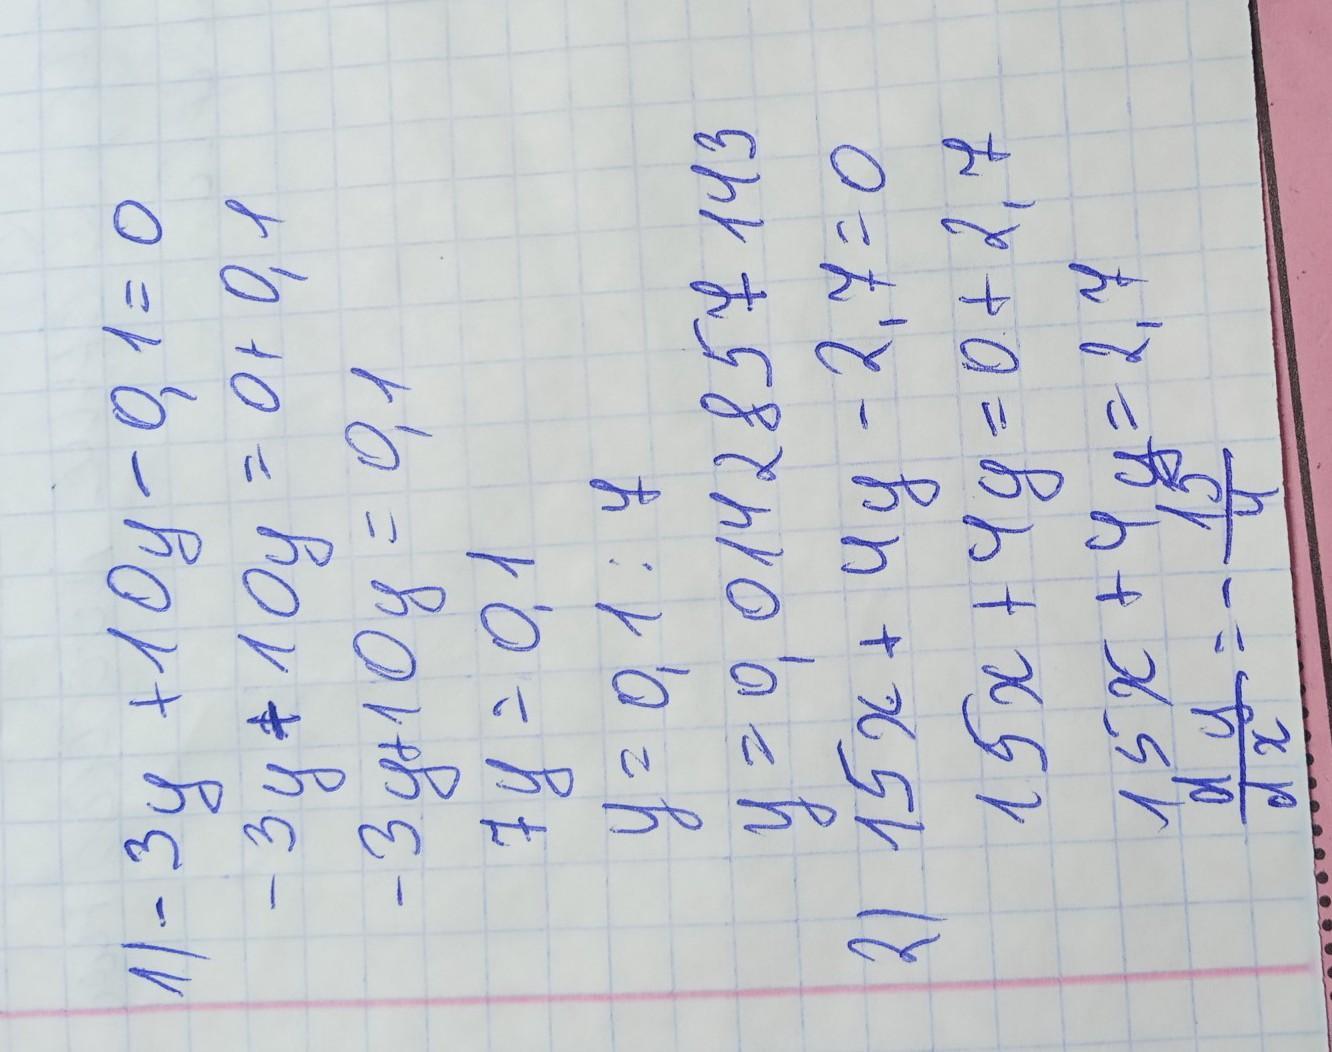 1) -3y +10y - 0,1 = 0
-3y + 10y = 0 + 0,1
-3y+10y = 0,1
7y = 0,1
y = 0,1 : 7
y = 0,0142857143
2) 15x + 4y - 2,7 = 0
15x + 4y = 0 + 2,7
15x + 4y = 2,7
dy/dx = - 15/4